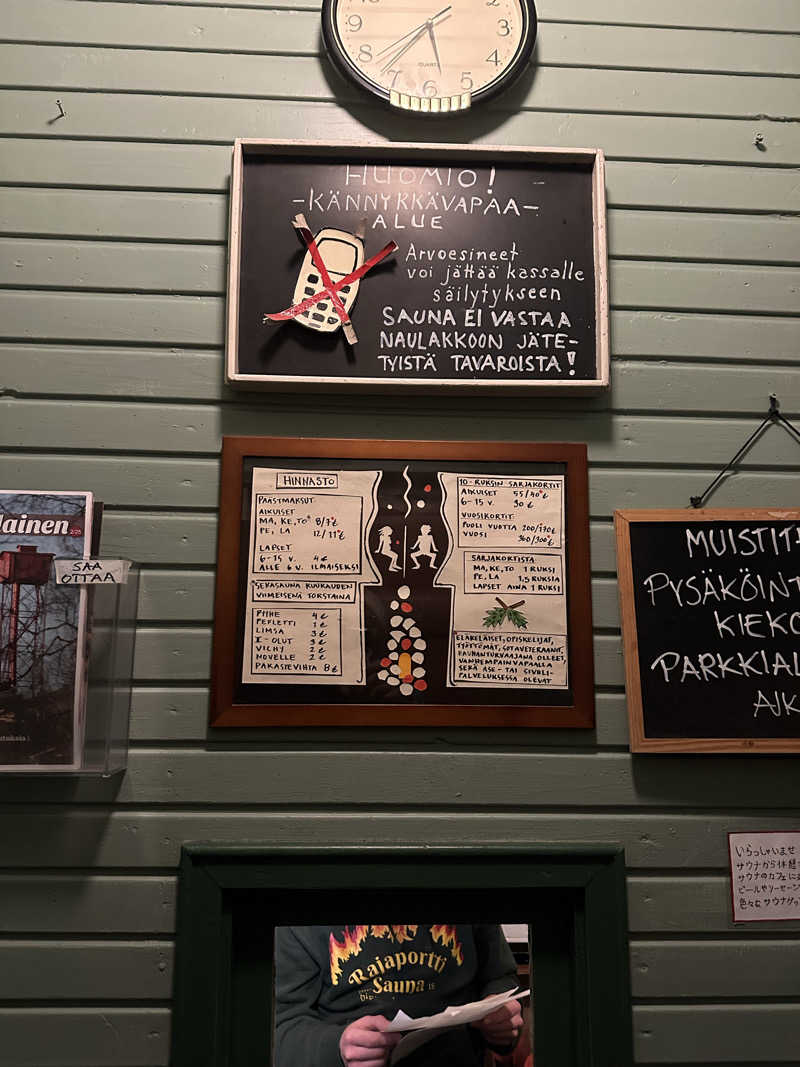 9
8
7
6
5
4
3
2
QUARTZ
HUOMIO!
-KÄNNYKKÄVAPAA-
ALUE
Arvoesineet
voi jättää kassalle
säilytykseen
SAUNA EI VASTAA
NAULAKKOON JÄTE-
TYISTÄ TAVAROISTA!
HINNASTO
PÄÄSTMAKSUT
AIKUISET
MA, KE, TO 8/7€
PE, LA 12/11€
LAPSET
6-15 V. 4€
ALLE 6 V. ILMAISEKSI
SEKASAUNA KUUKAUDEN
VIIMEISENÄ TORSTAINA
PYYHE 4€
PEFLETTI 1€
LIMSA 3€
I-OLUT 3€
VICHY 2€
NOVELLE 2€
PAKASTEVIHTA 8€
10-RUKSIN SARJAKORTIT
AIKUISET 55/40€
6-15 V. 30€
VUOSIKORTIT
PUOLI VUOTTA 200/170€
VUOSI 360/300€
SARJAKORTISTA
MA, KE, TO 1 RUKSI
PE, LA 1,5 RUKSIA
LAPSET AINA 1 RUKSI
ELÄKELÄISET, OPISKELIJAT,
TYÖTTÖMÄT, SOTAVETERAANIT,
RAUHANTURVAAJANA OLLEET,
VANHEMPAINVAPAALLA
SEKÄ ASE- TAI SIVIILI-
PALVELUKSESSA OLEVAT
lainen
2/25
SAA
OTTAA
MUISTIT
PYSÄKÖIN
KIEKO
PARKKIAL
AJK
いらっしゃいませ
サウナから休憩
サウナのカフェに
ビールやソーセージ
色々なサウナグッ
Rajaportti
Sauna